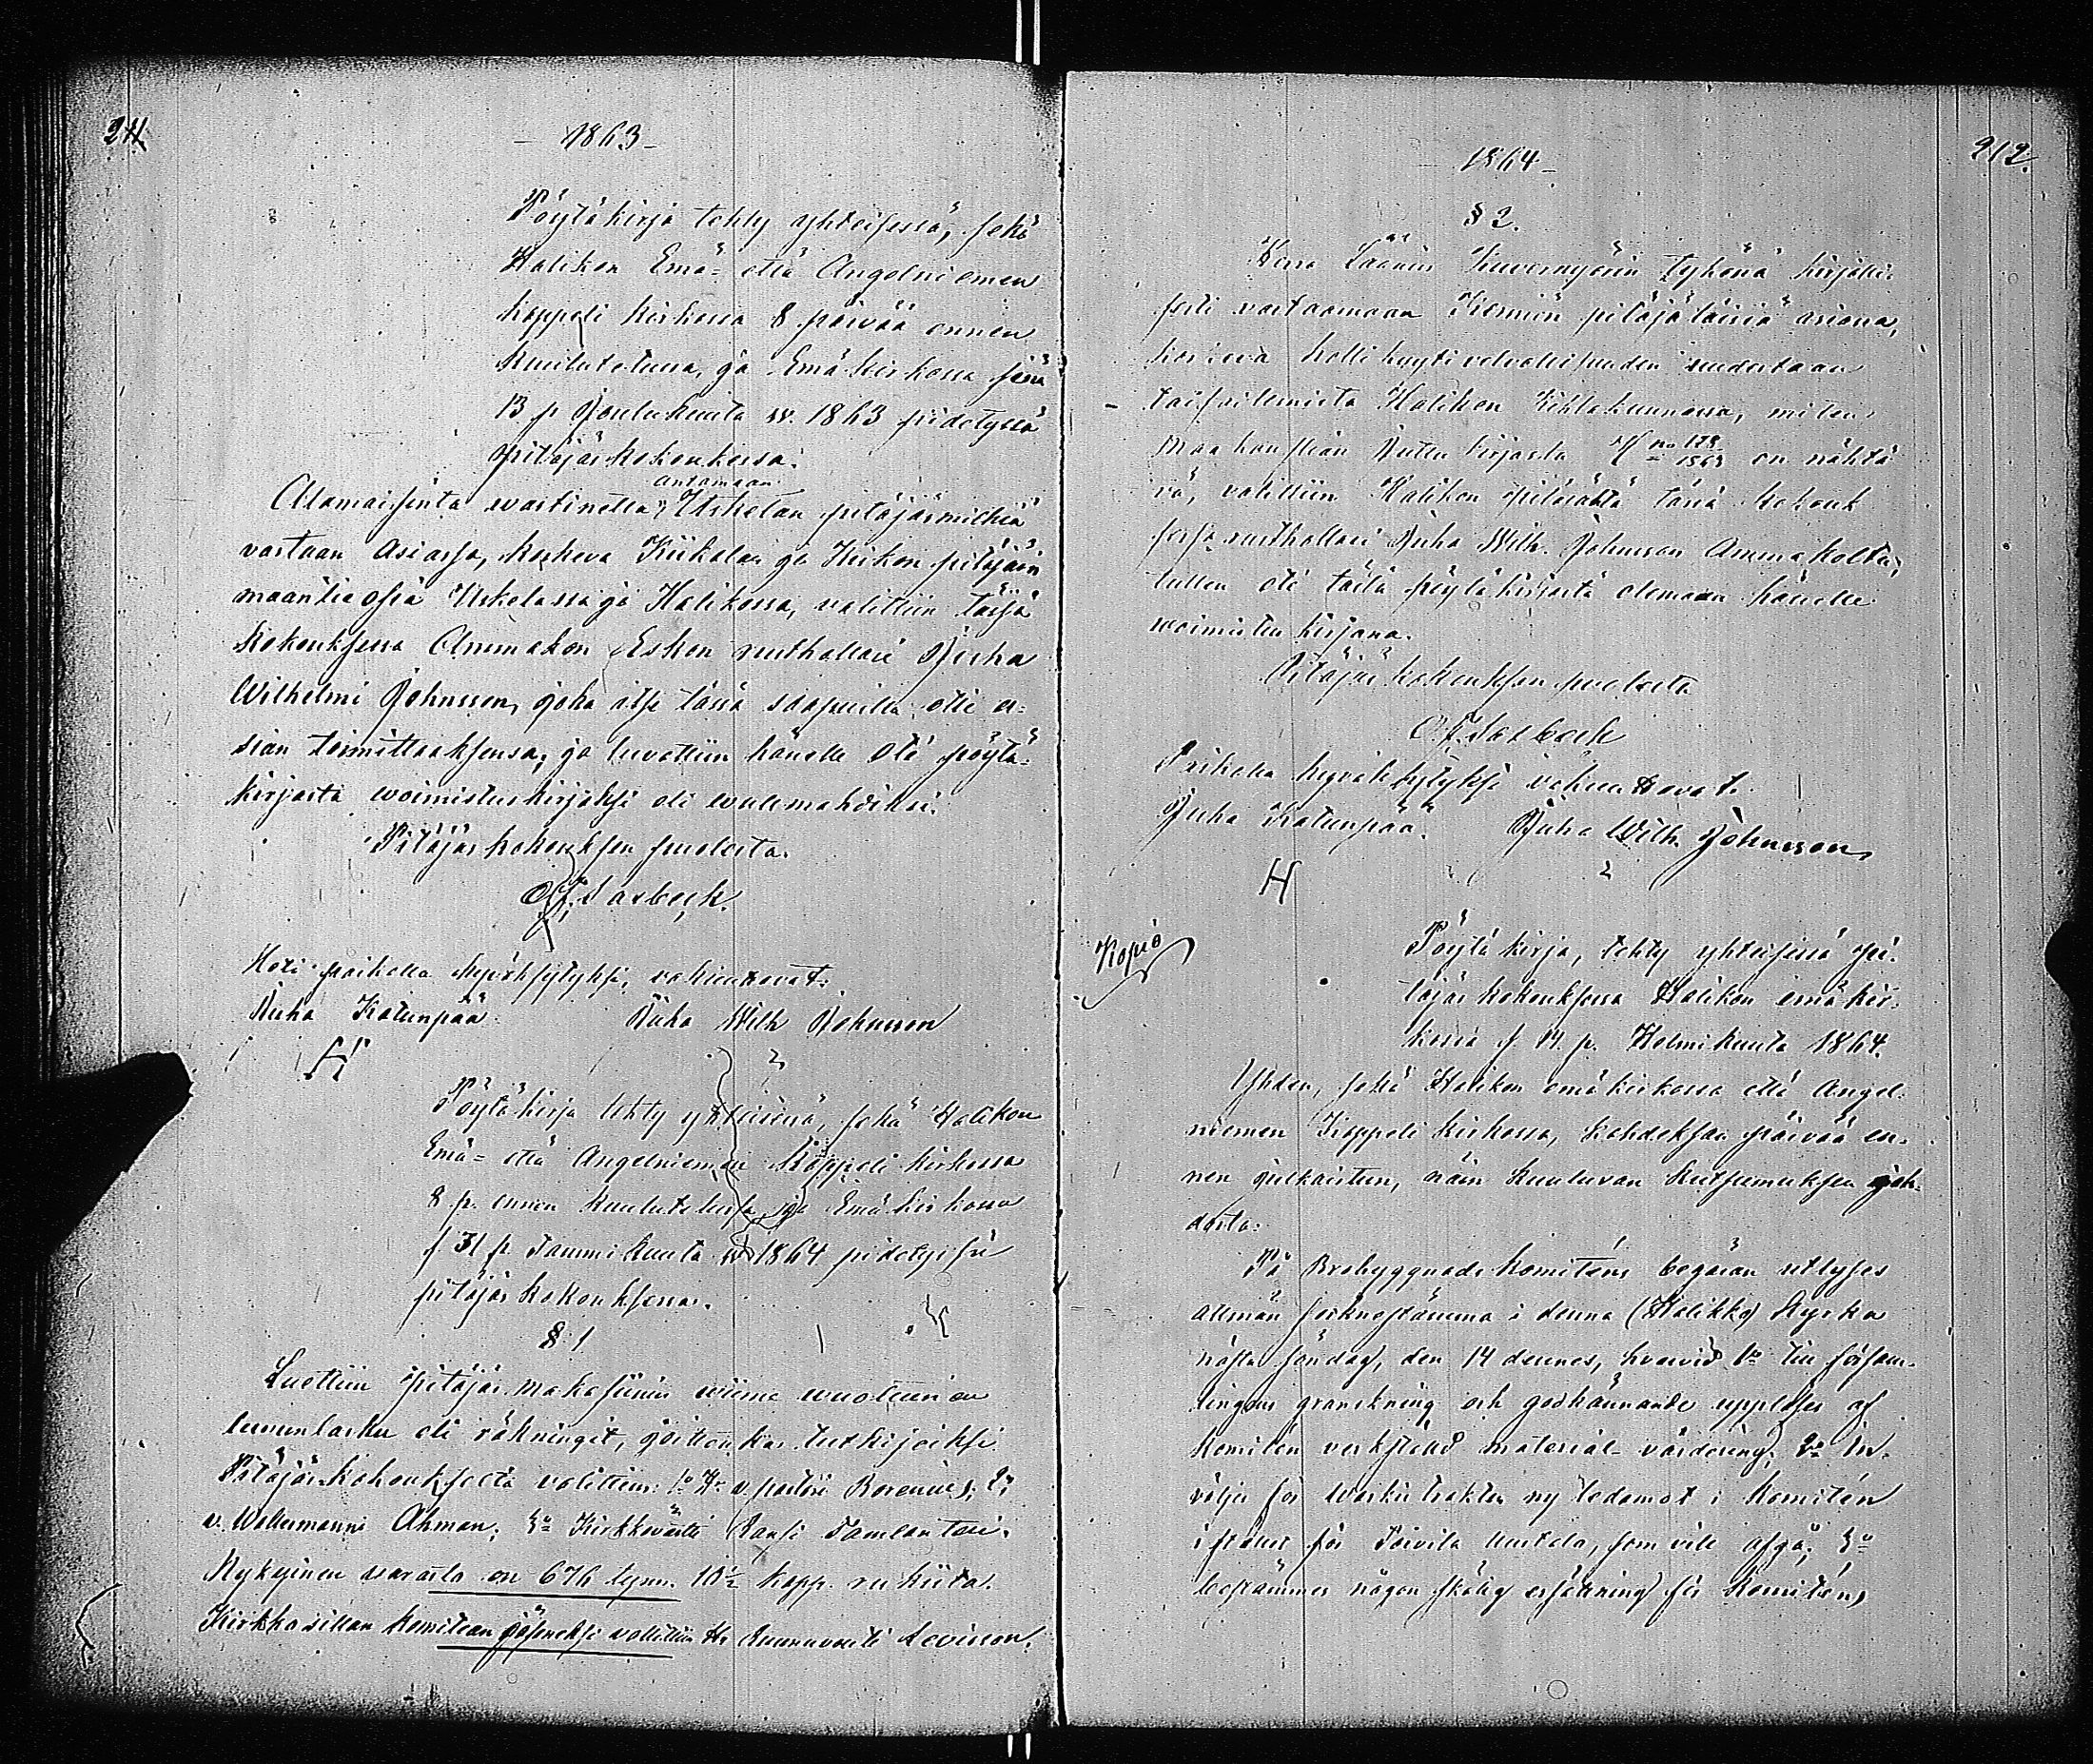 211
- 1863 -
Pöytäkirja tehty yhteisessä, sekä
Halikon Emä- että Angelniemen
kappeli kirkossa 8 päivää ennen
kuulutetussa, ja Emäkirkossa sinä
13 p Joulukuuta w. 1863 pidetyssä
pitäjäskokouksessa.
Alamaisinta wastinetta antamaan Uskelan pitäjäsmiehiä
vastaan Asiassa, koskeva Kiikalan ja Kiskon pitäjäin
maantie osia Uskelassa ja Halikossa, valittiin tässä
Kokouksessa Ammakon Eskon rusthollari Juha
Wilhelmi Johnsson, joka itse tässä saapuilla otti a-
sian toimittaaksensa, ja luvattiin hänelle Ote pöytä-
kirjasta woimistuskirjaksi eli walemahdiksi.
Pitäjäs kokouksen puolesta.
O. F. Sasbeck.
Koti paikalla hyväksytyksi, vakuuttavat:
Juha Katunpää Juha Wilh Johnsson
Pöytäkirja tehty yhteisessä, sekä Halikon
Emä- että Angelniemen Kappeli kirkossa
8 p. ennen kuulutetussa, ja Emäkirkossa
s 31 p. Tammikuuta w 1864 pidetyssä
pitäjäs kokouksessa.
§ 1
Luettiin pitäjäs makasiinin wiime wuotinen
luvunlasku eli räkningit, joitenkas tutkijoiksi
Pitäjäs Kokoukselta valittiin: 1o Hr v. pastori Borenius; 2o
v. Wallesmanni Åhman; 3o Kirkkoväärti
Nykyinen varasto on 676 tynn. 10½ kapp. rukiita.
Kirkkosillan komitean jäseneksi valittiin Hr Ruunuvouti Levisson.
212
1864 -
§ 2.
Herra Läänin Kuvernyörin tykönä kirjalli-
sesti vastaamaan Kemiön pitäjäläisiä asiassa,
koskeva hollikyyti velvollisuuden suudestaan
Halikon Kihlakunnassa, miten
Maa kanslian Kuttu kirjasta No 178/1563 on nähtä
vä, valittiin Halikon pitäjästä tässä kokouk
sessa rusthollari Juha Wilh. Johnsson Ammakolta,
tullen ote tästä pöytäkirjasta olemaan hänelle
woimistus kirjana.
Pitäjäs kokouksen puolesta
O. F. Sasbeck
Paikalla hyväksytyksi vakuuttavat.
Juha Katunpää. Juha Wilh. Johnsson,
Kopio
Pöytäkirja, tehty yhteisessä pi-
täjäs kokouksessa Halikon emäkir-
kossa s 14 p. Helmikuuta 1864.
Yhden, sekä Halikon emäkirkossa että Angel-
niemen Kappeli kirkossa, kahdeksaa päivää en-
nen julkaistun, näin kuuluvan kutsumuksen joh-
dosta:
På Brobyggnads komiténs begäran utlyses
allmän socknestämma i denna (Halikko) kyrka
nästa söndag, den 14 dennes, hvarvid 1o till försam-
lingens granskning och godkännande uppläses af
Komitén verkställd material-värdering; 2o In-
väljes för Waskio trakten ny ledamot i Komitén
i stället för Toivila Uustalo, som vill afgå; 3o
bestämmes någon skälig ersättning för Komiténs